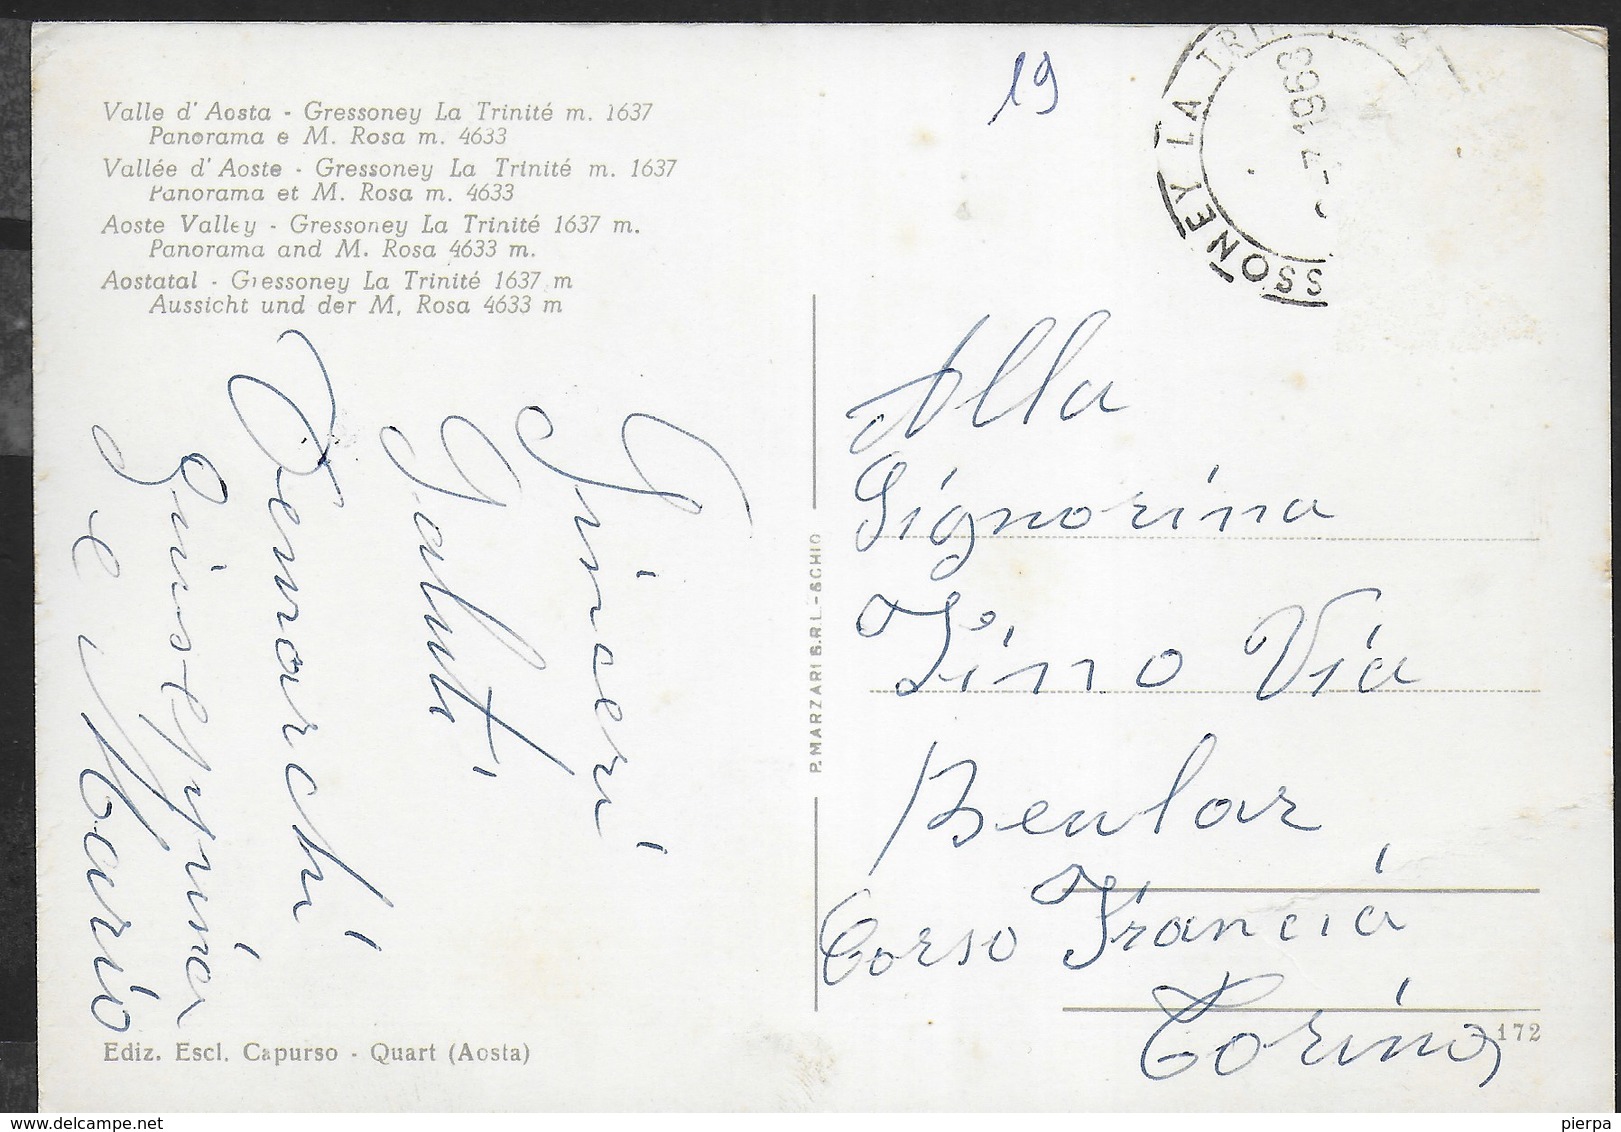 Valle d' Aosta - Gressoney La Trinité m. 1637
Panorama e M. Rosa m. 4633
Vallée d' Aoste - Gressoney La Trinité m. 1637
Panorama et M. Rosa m. 4633
Aoste Valley - Gressoney La Trinité 1637 m.
Panorama and M. Rosa 4633 m.
Aostatal - Gressoney La Trinité 1637 m
Aussicht und der M, Rosa 4633 m
19
SSONEY LA TRI
-7 1963
Sinceri
Saluti
Demarchi
Giuseppina
e Mario
P. MARZARI S.R.L. - SCHIO
Alla
Signorina
Zino Via
Beular
Corso Francia
Torino
172
Ediz. Escl. Capurso - Quart (Aosta)
pierpa